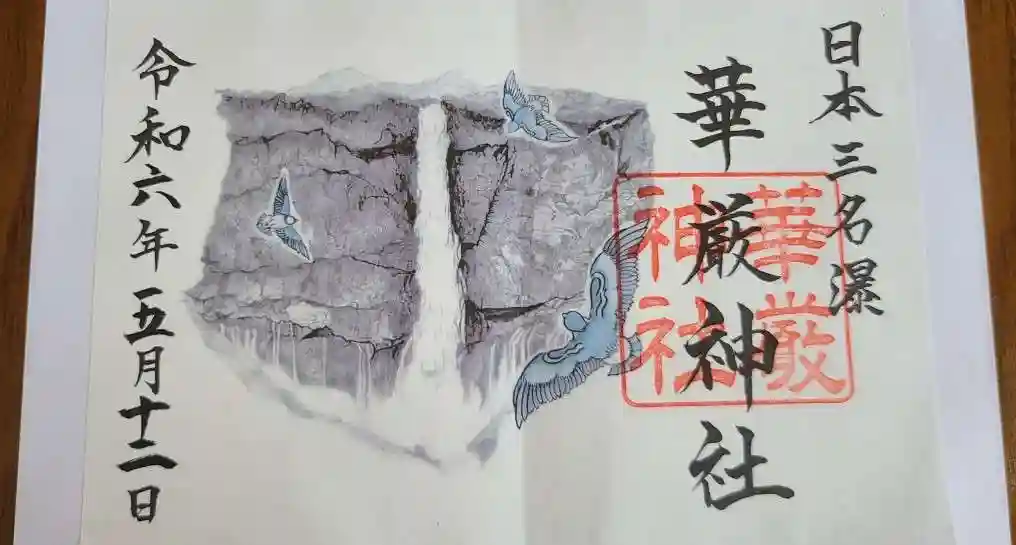 日本三名瀑
華厳神社
華厳
神社
令和六年五月十二日